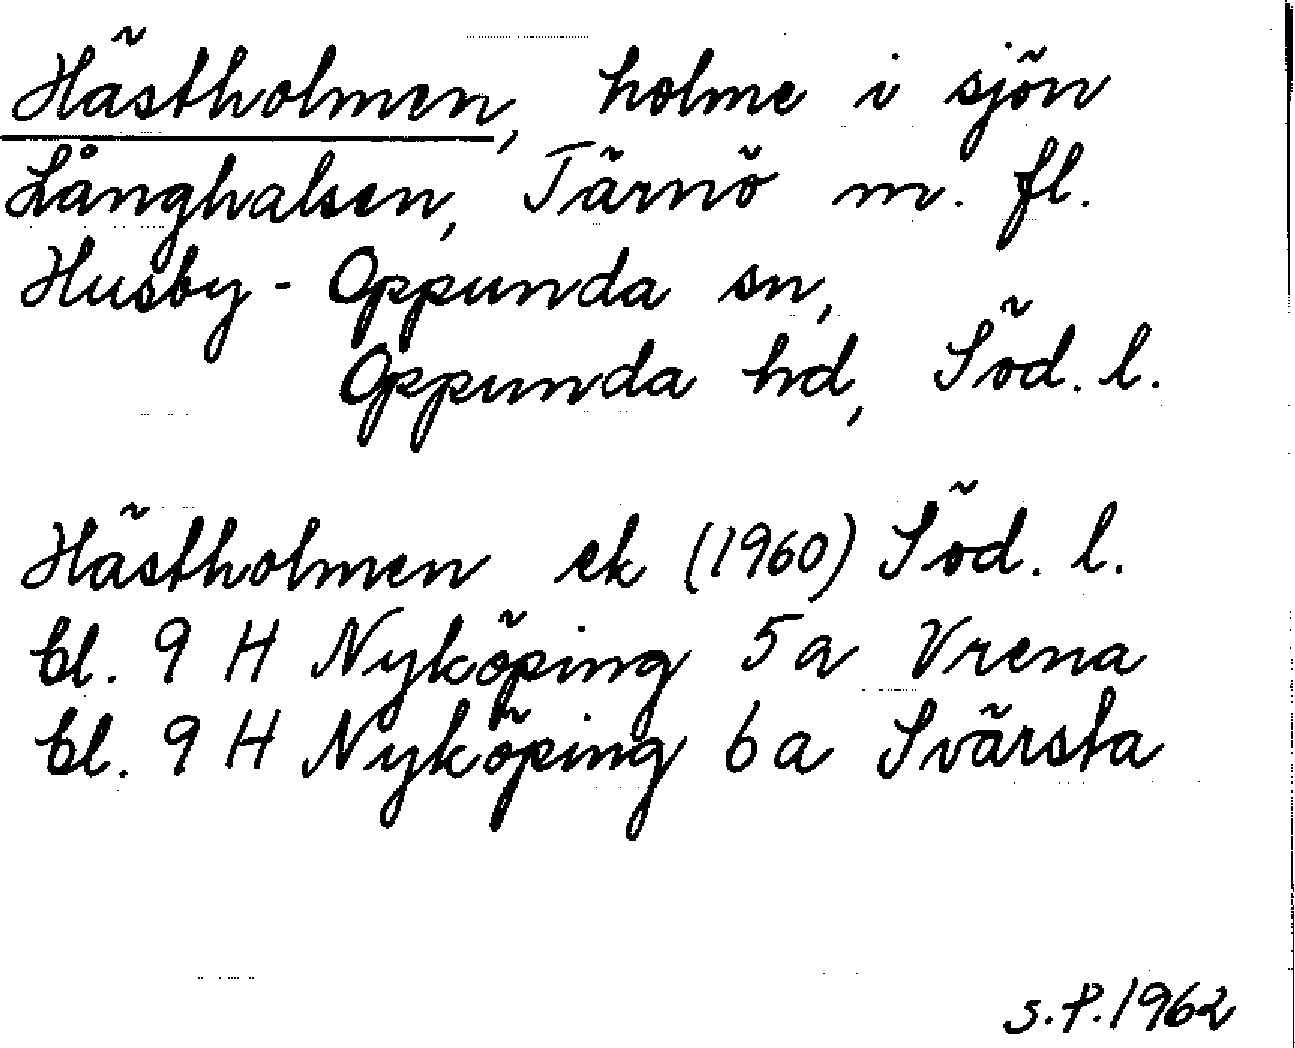 Hästholmen, holme i sjön
Långhalsen, Tärnö m. fl.
Husby-Oppunda sn,
Oppunda hd, Söd. l.
Hästholmen ek (1960) Söd. l.
bl. 9 H Nyköping 5a Vrena
bl. 9 H Nyköping 6a Svärsta
S.P. 1962